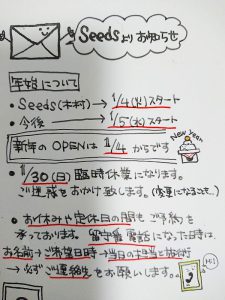 Seedsよりお知らせ
年始について
• Seeds(木村)→ 1/4(火)スタート
• 今後 → 1/5(水)スタート
新年のOPENは 1/4 からです
New Year
• 1/30(日) 臨時休業になります。
ご迷惑をおかけ致します。
• お休みや定休日の間もご予約を
承っております。留守番電話になった時は
お名前→ご希望日時→当日のお手当と施術
→必ずご連絡をお願いします。